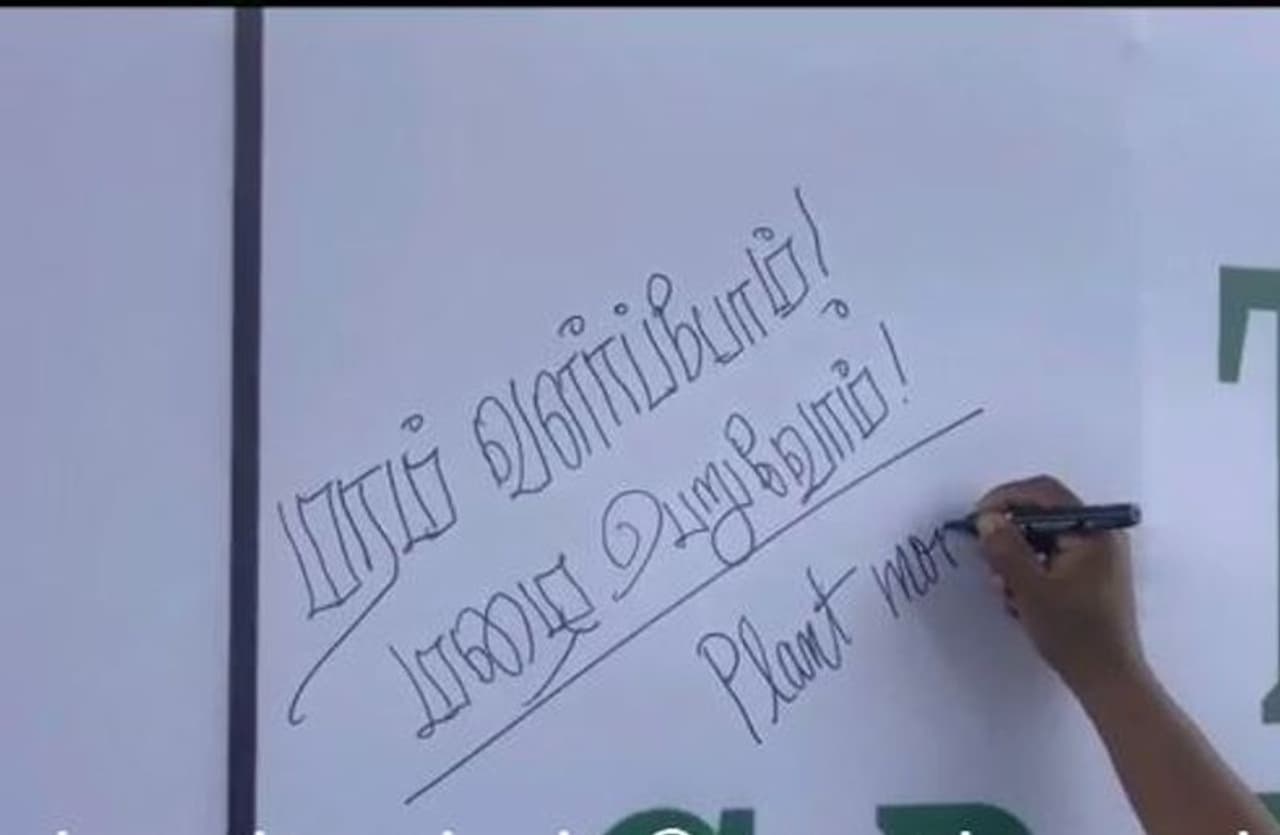 மரம் வளர்ப்போம்!
மழை பெறுவோம்!
Plant mor